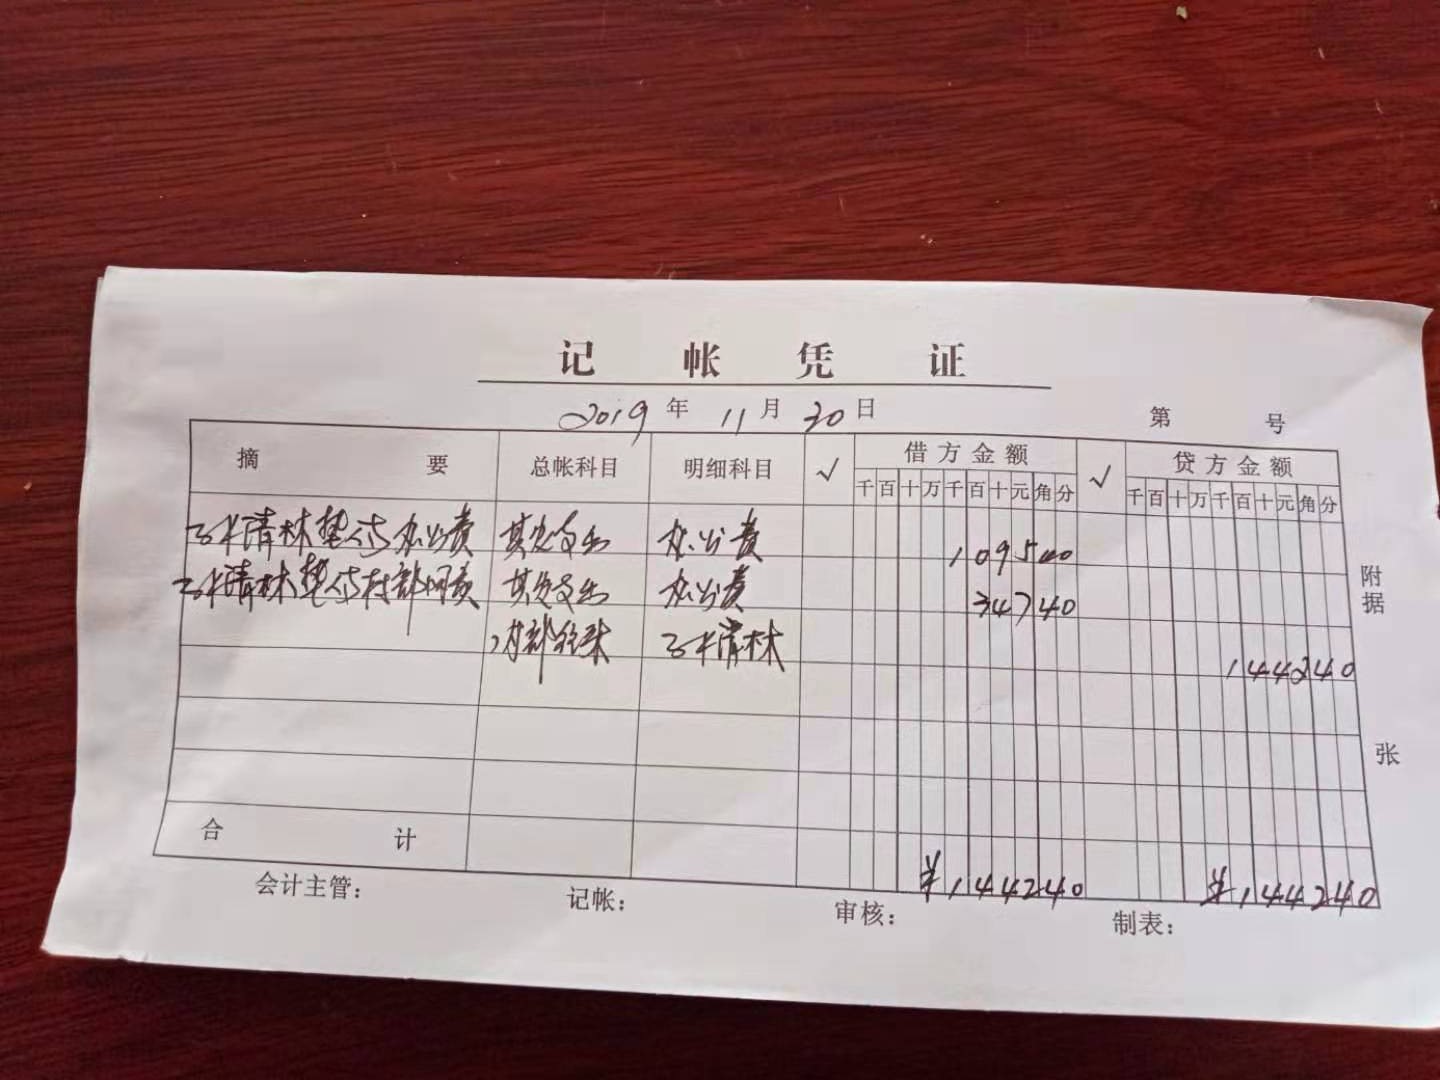 记帐凭证
2019年11月30日 第 号
摘要 总帐科目 明细科目 √ 借方金额 √ 贷方金额
千百十万千百十元角分 千百十万千百十元角分
清林垫付办公费 其它支出 办公费 109500
清林垫付村部网费 其它支出 办公费 34740
内部往来 清林 144240
附据
张
合计 ¥144240 ¥144240
会计主管: 记帐: 审核: 制表: